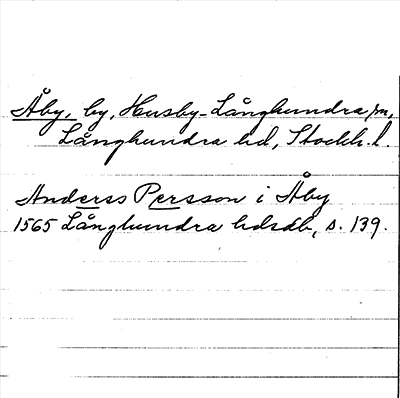 Åby, by, Husby-Långhundra sn,
Långhundra hd, Stockh. l.
Anderss Persson i Åby
1565 Långhundra hdsdb, s. 139.